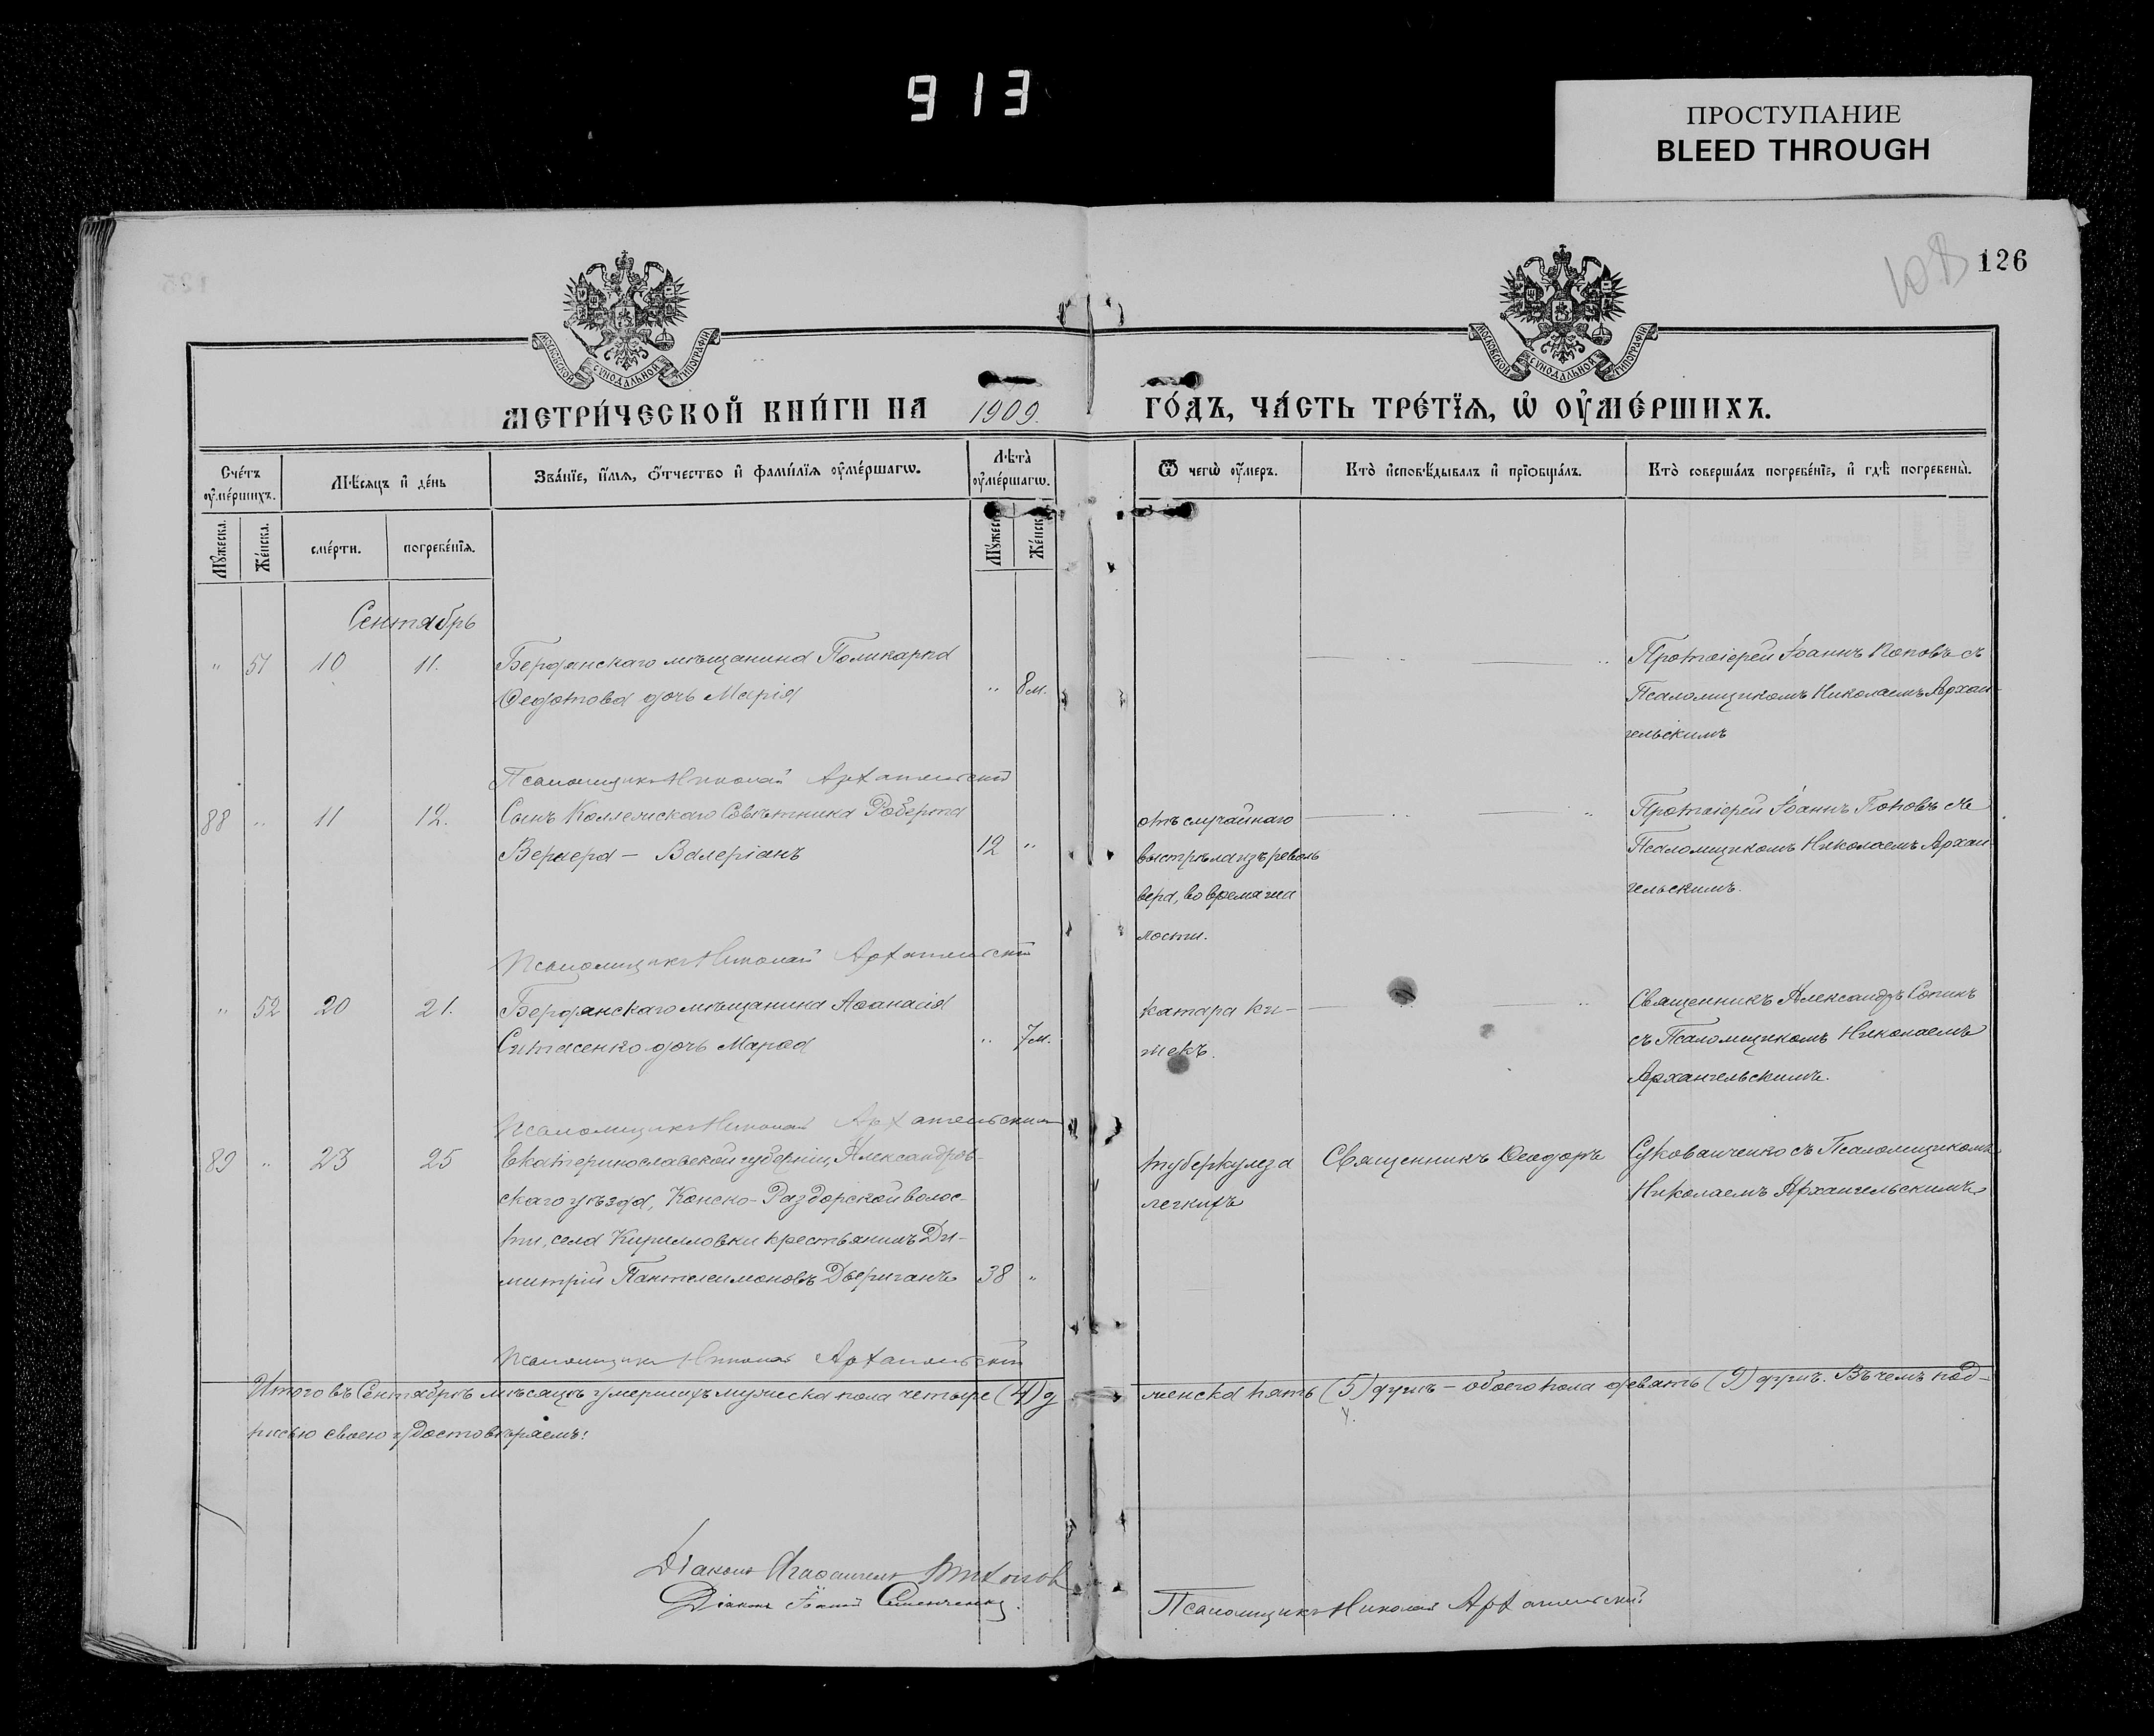 913
ПРОСТУПАНИЕ
BLEED THROUGH
126
МОСКОВСКОЙ СѴНОДАЛЬНОЙ ТИПОГРАФІИ
МОСКОВСКОЙ СѴНОДАЛЬНОЙ ТИПОГРАФІИ
МЕТРИ́ЧЕСКОЙ КНИ́ГИ НА 1909. ГО́ДЪ, ЧА́СТЬ ТРЕ́ТІѦ, Ѡ ОУ҆МЕ́РШИХЪ.
Сче́тъ оу҆ме́ршихъ.
Мѣ́сяцъ и҆ де́нь
Зва́нїе, и҆́мѧ, ѻ҆́тчество и҆ фами́лїѧ оу҆ме́ршагѡ.
Лѣ́та̀ оу҆ме́ршагѡ.
Ѿ чегѡ̀ оу҆́меръ.
Кто̀ и҆сповѣ́дывалъ и҆ прїѡбща́лъ.
Кто̀ соверша́лъ погребе́нїе, и҆ гдѣ̀ погребены̀.
Мꙋ́жеска.
Же́нска.
сме́рти.
погребе́нїѧ.
Мꙋ́жеска.
Же́нска.
Сентябрь
" 51 10 11. Бердянскаго мѣщанина Поликарпа
Ѳедотова дочь Марія " 8 м.
Протоіерей Іоаннъ Поповъ съ
Псаломщикомъ Николаемъ Архан-
гельскимъ
Псаломщикъ Николай Архангельскій
88 " 11 12. Сынъ Коллежскаго Совѣтника Роберта
Вернера — Валеріанъ 12 "
отъ случайнаго
выстрѣла изъ револь
вера, во время ша
лости.
Протоіерей Іоаннъ Поповъ съ
Псаломщикомъ Николаемъ Архан
гельскимъ.
Псаломщикъ Николай Архангельскій
" 52 20 21. Бердянскаго мѣщанина Аѳанасія
дочь " 7 м.
катара ки-
шекъ.
Священникъ Александръ Сопинъ
съ Псаломщикомъ Николаемъ
Архангельскимъ.
Псаломщикъ Николай Архангельскій
89 " 23 25 Екатеринославской губерніи, Александров-
скаго уѣзда, Конско-Раздорской волос-
ти, села Кирилловки крестьянинъ Ди-
митрій Пантелеимоновъ 38 "
туберкулеза
легкихъ
Священникъ Ѳеодоръ Сукованченко съ Псаломщикомъ
Николаемъ Архангельскимъ
Псаломщикъ Николай Архангельскій
Итого въ Сентябрѣ мѣсяцѣ умершихъ мужеска пола четыре (4) д женска пять (5) душъ — обоего пола девять (9) душъ. Въ чемъ под-
писью своею удостовѣряемъ:
Діаконъ Агаѳангелъ
Діаконъ Семенченко.
Псаломщикъ Николай Архангельскій